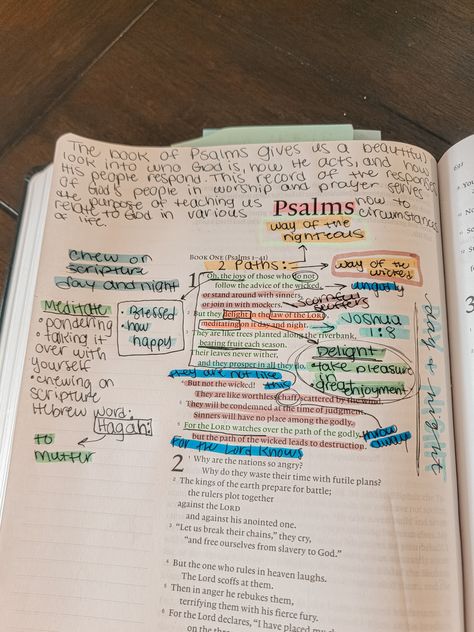 The book of Psalms gives us a beautiful
look into who God is, how He acts, and how
His people respond. This record of the responses
of God's people in worship and prayer serves
the purpose of teaching us how to
relate to God in various circumstances
of life.
Psalms
way of the
righteous
BOOK ONE (Psalms 1–41)
2 Paths:
way of the
wicked
chew on
scripture
day and night
Meditate
• pondering
• talking it
over with
yourself
• chewing on
scripture
Hebrew word:
Hagah:
to
mutter
• Blessed
• how
happy
1
Oh, the joys of those who do not
follow the advice of the wicked,
ungodly
or stand around with sinners,
or join in with mockers.
scoffers
2 But they delight in the law of the LORD,
meditating on it day and night.
Joshua
1:8
3 They are like trees planted along the riverbank,
bearing fruit each season.
Their leaves never wither,
and they prosper in all they do.
Delight
• take pleasure
in
• great enjoyment
day + night
they are not like
this
4 But not the wicked!
They are like worthless chaff, scattered by the wind.
5 They will be condemned at the time of judgment.
Sinners will have no place among the godly.
6 For the LORD watches over the path of the godly,
but the path of the wicked leads to destruction.
throw
away
For the Lord knows
2
1 Why are the nations so angry?
Why do they waste their time with futile plans?
2 The kings of the earth prepare for battle;
the rulers plot together
against the LORD
and against his anointed one.
3 "Let us break their chains," they cry,
"and free ourselves from slavery to God."
4 But the one who rules in heaven laughs.
The Lord scoffs at them.
5 Then in anger he rebukes them,
terrifying them with his fierce fury.
6 For the Lord declares, "I have placed my
on the